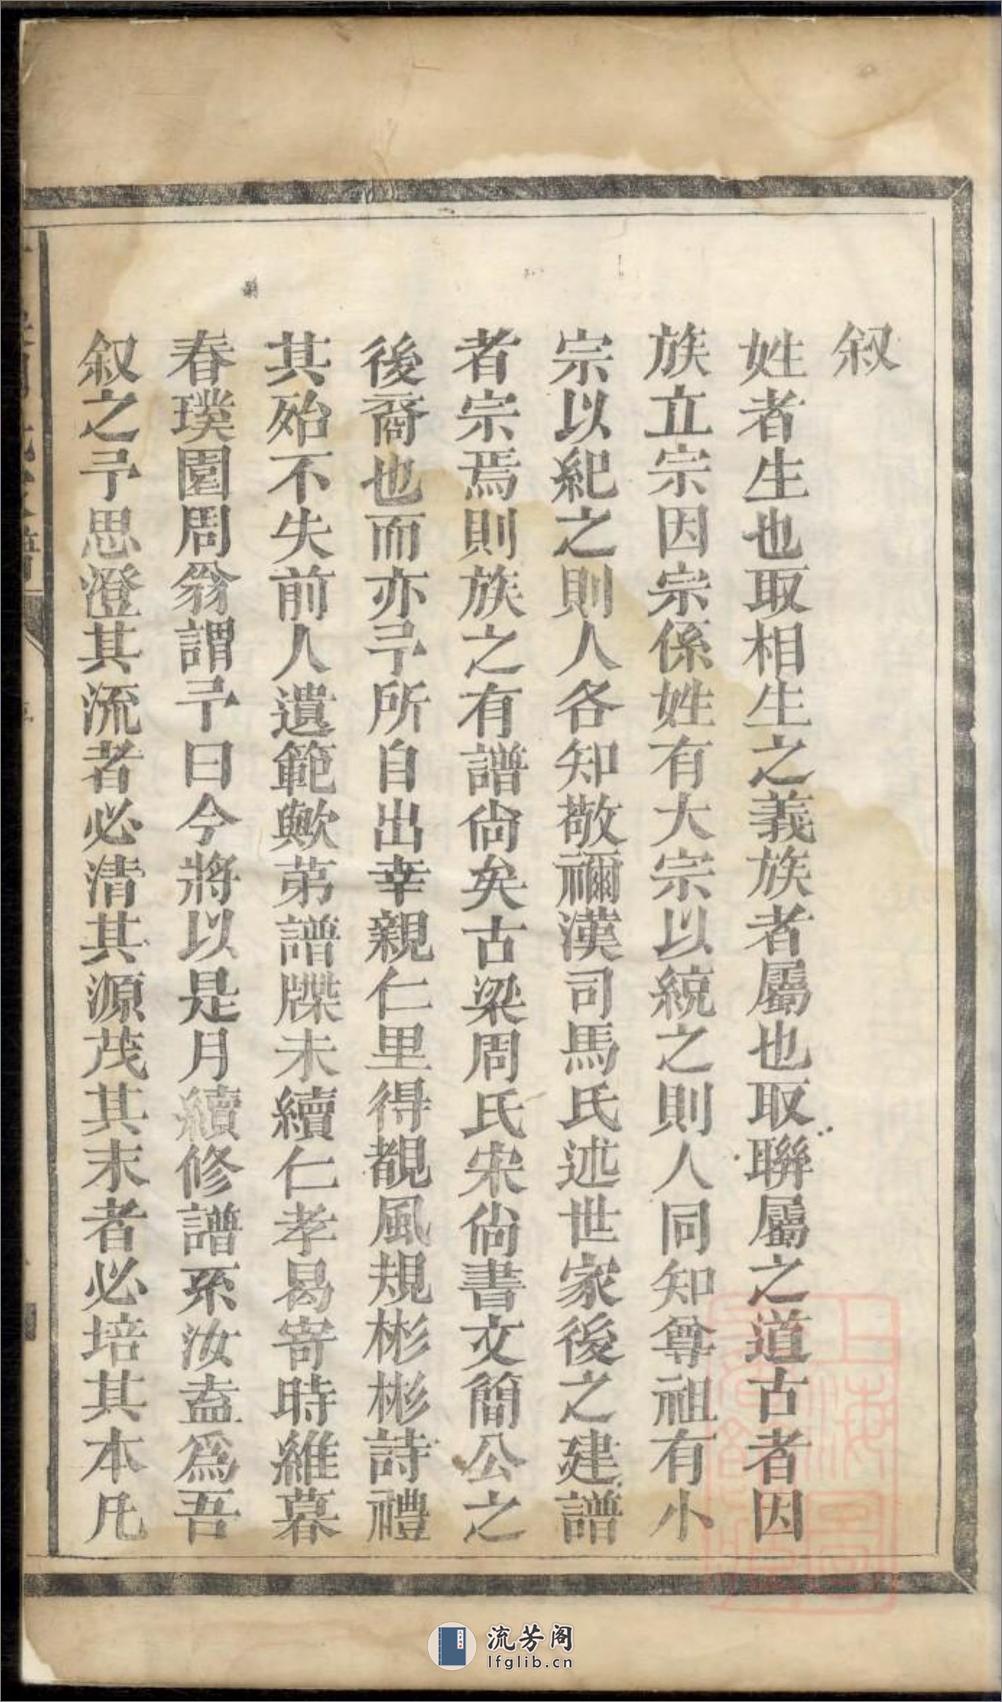 叙
姓者生也取相生之義族者屬也取聯屬之道古者因
族立宗因宗係姓有大宗以統之則人同知尊祖有小
宗以紀之則人各知敬禰漢司馬氏述世家後之建譜
者宗焉則族之有譜尙矣古梁周氏宋尙書文簡公之
後裔也而亦予所自出幸親仁里得覩風規彬彬詩禮
其殆不失前人遺範歟第譜牒未續仁孝曷寄時維暮
春璞園周翁謂予曰今將以是月續修譜系汝盍爲吾
叙之予思澄其流者必清其源茂其末者必培其本凡
上海圖書館藏
流芳阁
lfglib.cn